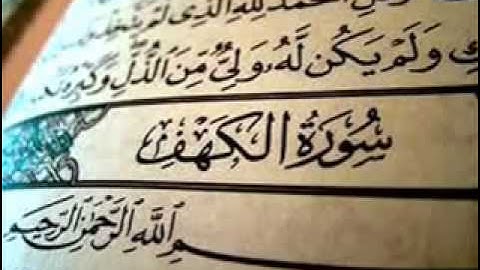 الحمد لله الذى لم يتخذ
ك ولم يكن له ولي من الذل وكبره
سورة الكهف
بسم الله الرحمن الرحيم